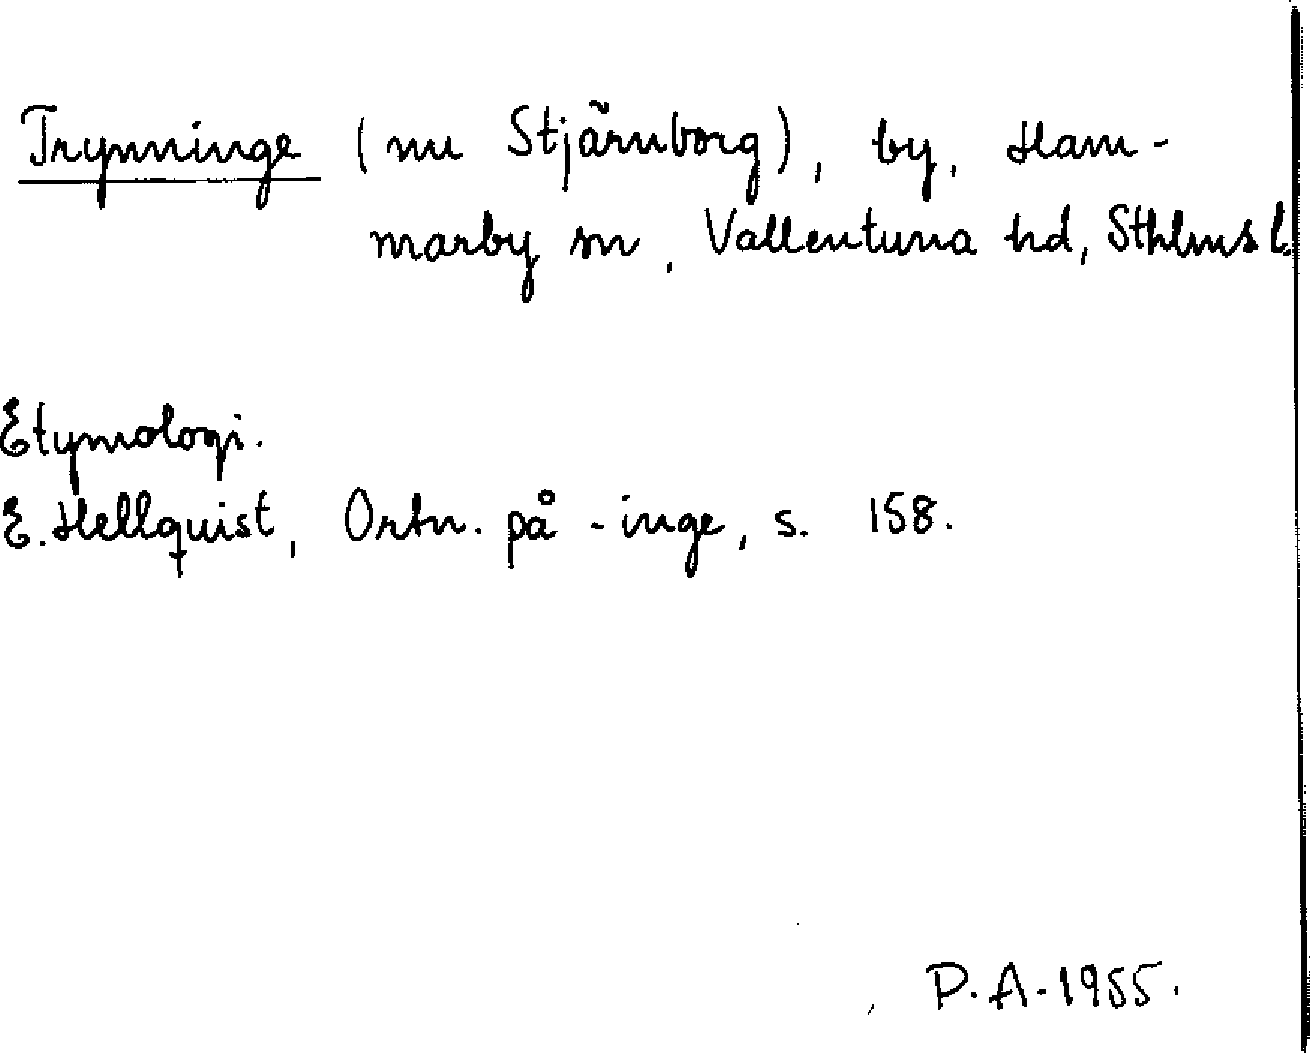 Trynninge (nu Stjärnborg), by, Ham-
marby sn, Vallentuna hd, Sthlms l.
Etymologi.
E. Hellquist, Ortn. på -inge, s. 158.
P.A. 1955.